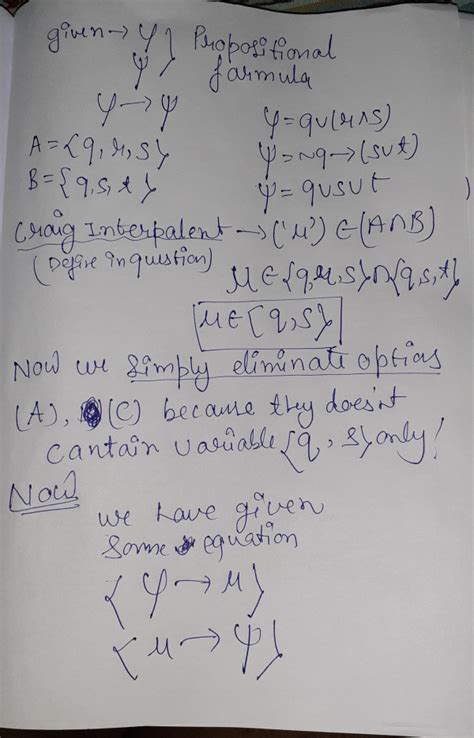 given → φ } Propositional
ψ } formula
φ → ψ
φ = q∪(r∧s)
A = {q, r, s}
ψ = ~q → (s∪t)
B = {q, s, t}
ψ = q∪s∪t
Craig Interpalent → ('μ') ∈ (A∩B)
(Define in question)
μ ∈ {q, r, s} ∩ {q, s, t}
μ ∈ {q, s}
Now we simply eliminate options
(A), (C) because they does'nt
cantain variable {q, s} only!
Now
we have given
Some equation
{φ → μ}
{μ → ψ}